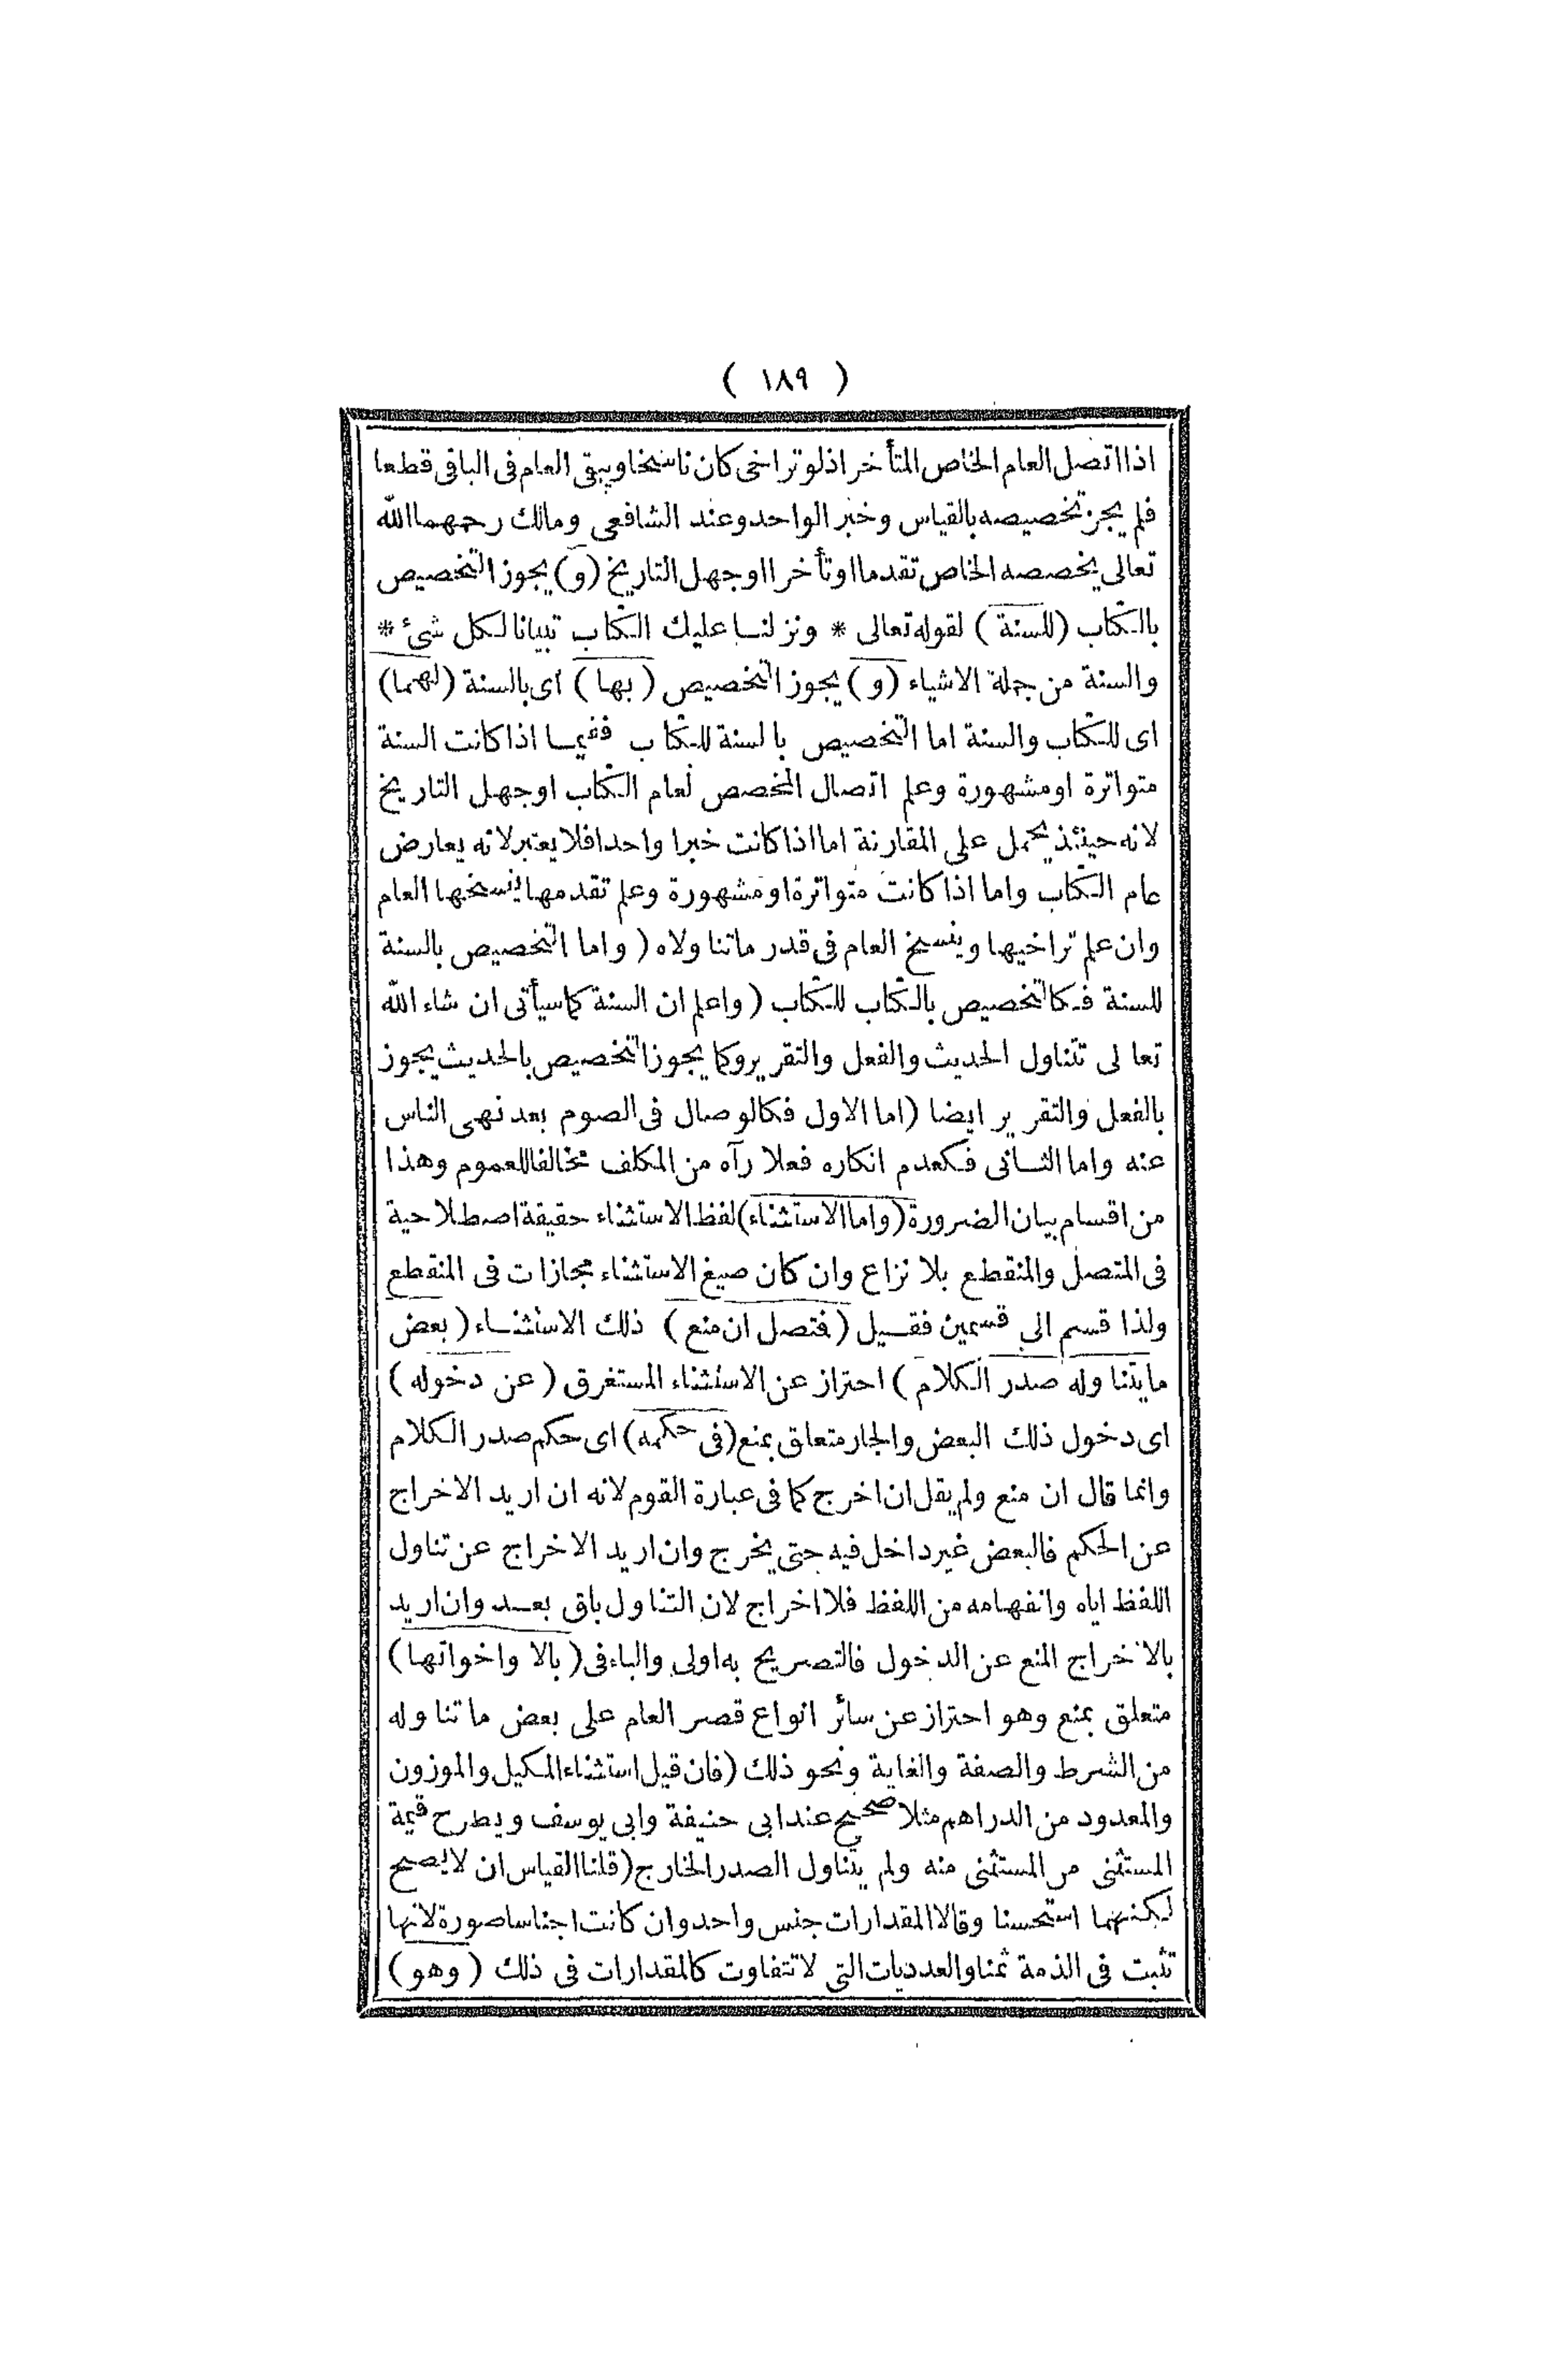 ( ١٨٩ )
اذا اتصل العام الخاص المتأخر اذ لو تراخى كان ناسخا ويبقى العام فى الباقى قطعا
فلم يجز تخصيصه بالقياس وخبر الواحد وعند الشافعى ومالك رحمهما الله
تعالى يخصصه الخاص تقدم او تأخر او جهل التاريخ (و) يجوز التخصيص
بالكتاب (للسنة) لقوله تعالى * ونزلنا عليك الكتاب تبيانا لكل شئ *
والسنة من جملة الاشياء (و) يجوز التخصيص (بها) اى بالسنة (لهما)
اى للكتاب والسنة اما التخصيص بالسنة للكتاب ففيما اذا كانت السنة
متواترة او مشهورة وعلم اتصال المخصص لعام الكتاب او جهل التاريخ
لانه حينئذ يحمل على المقارنة اما اذا كانت خبرا واحدا فلا يعتبر لانه يعارض
عام الكتاب واما اذا كانت متواترة او مشهورة وعلم تقدمها ينسخها العام
وان علم تراخيها وينسخ العام فى قدر ما تناولاه ( واما التخصيص بالسنة
للسنة فكالتخصيص بالكتاب للكتاب ( واعلم ان السنة كما سيأتى ان شاء الله
تعالى تتناول الحديث والفعل والتقرير وكما يجوز التخصيص بالحديث يجوز
بالفعل والتقرير ايضا (اما الاول فكالوصال فى الصوم بعد نهى الناس
عنه واما الثانى فكعدم انكاره فعلا رآه من المكلف مخالفا للعموم وهذا
من اقسام بيان الضرورة (واما الاستثناء) لفظ الاستثناء حقيقة اصطلاحية
فى المتصل والمنقطع بلا نزاع وان كان صيغ الاستثناء مجازات فى المنقطع
ولذا قسم الى قسمين فقيل (فتصل ان منع) ذلك الاستثناء (بعض
ما يتناوله صدر الكلام) احتراز عن الاستثناء المستغرق (عن دخوله)
اى دخول ذلك البعض والجار متعلق بمنع (فى حكمه) اى حكم صدر الكلام
وانما قال ان منع ولم يقل ان اخرج كما فى عبارة القوم لانه ان اريد الاخراج
عن الحكم فالبعض غير داخل فيه حتى يخرج وان اريد الاخراج عن تناول
اللفظ اياه وانفهامه من اللفظ فلا اخراج لان التناول باق بعد وان اريد
بالاخراج المنع عن الدخول فالتصريح به اولى والباء فى (بالا واخواتها)
متعلق بمنع وهو احتراز عن سائر انواع قصر العام على بعض ما تناوله
من الشرط والصفة والغاية ونحو ذلك (فان قيل استثناء المكيل والموزون
والمعدود من الدراهم مثلا صحيح عند ابى حنيفة وابى يوسف ويطرح قيمة
المستثنى من المستثنى منه ولم يتناول الصدر الخارج (قلنا القياس ان لا يصح
لكنهما استحسنا وقالا المقدارات جنس واحد وان كانت اجناسا صورة لانها
تثبت فى الذمة ثمنا والعدديات التى لا تتفاوت كالمقدارات فى ذلك (وهو)